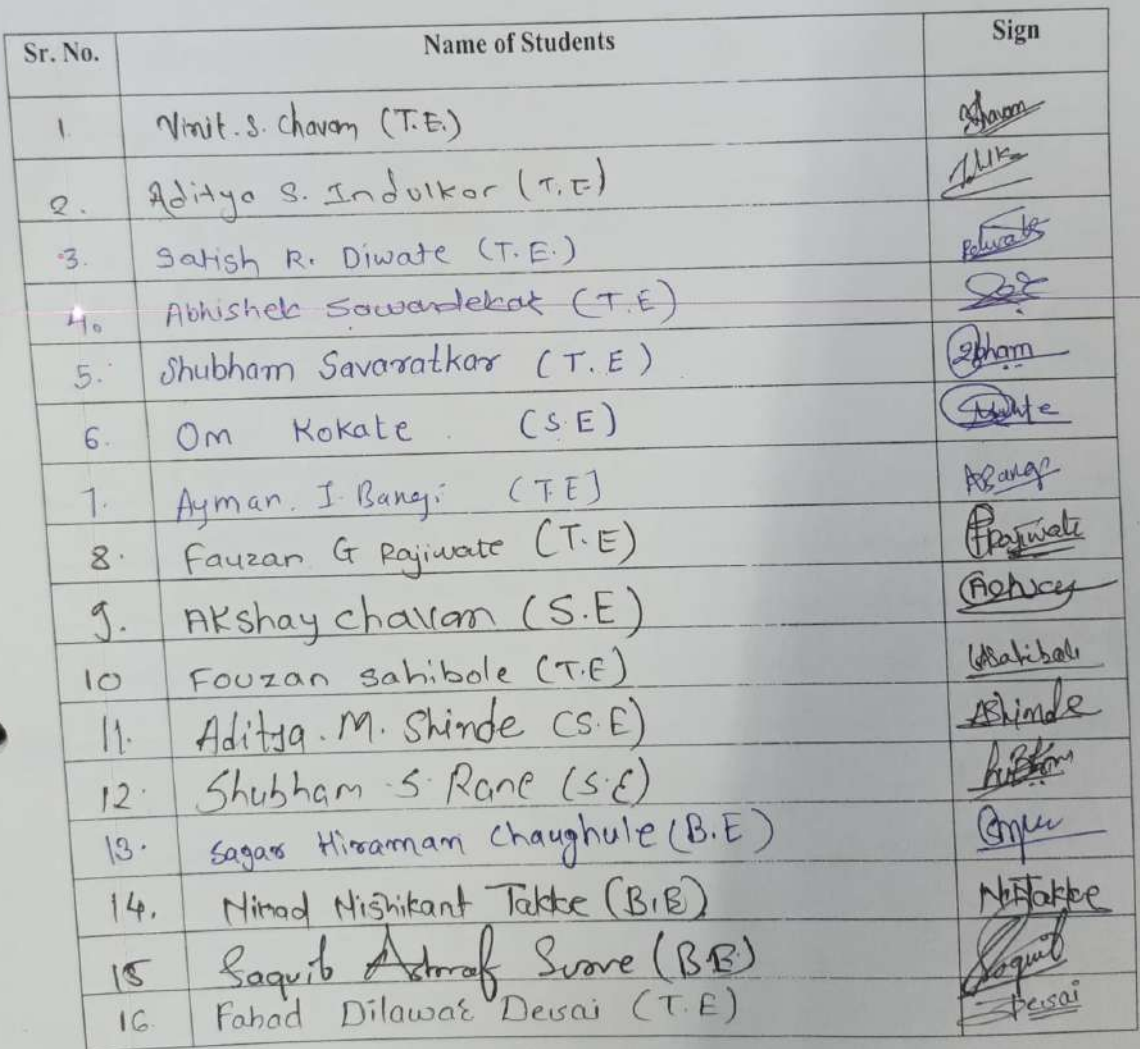 Sr. No. Name of Students Sign
1. Vinit. S. Chavan (T.E.) Chavan
2. Aditya S. Indulkar (T.E)
3. Satish R. Diwate (T.E.)
4. Abhishek Sawardekar (T.E)
5. Shubham Savaratkar (T.E)
6. Om Kokate (S.E)
7. Ayman. I. Bangi (T.E]
8. Fauzan G Rajiwate (T.E) FRajiwate
9. Akshay Chavan (S.E)
10 Fouzan Sahibole (T.E)
11. Aditya. M. Shinde (S.E) AShinde
12. Shubham S. Rane (S.E)
13. Sagar Hiraman Chaughule (B.E)
14. Nirad Nishikant Takke (B.E) N.N.Takke
15 Saquib Ashraf Surve (B.E) Saquib
16. Fahad Dilawar Desai (T.E) Desai